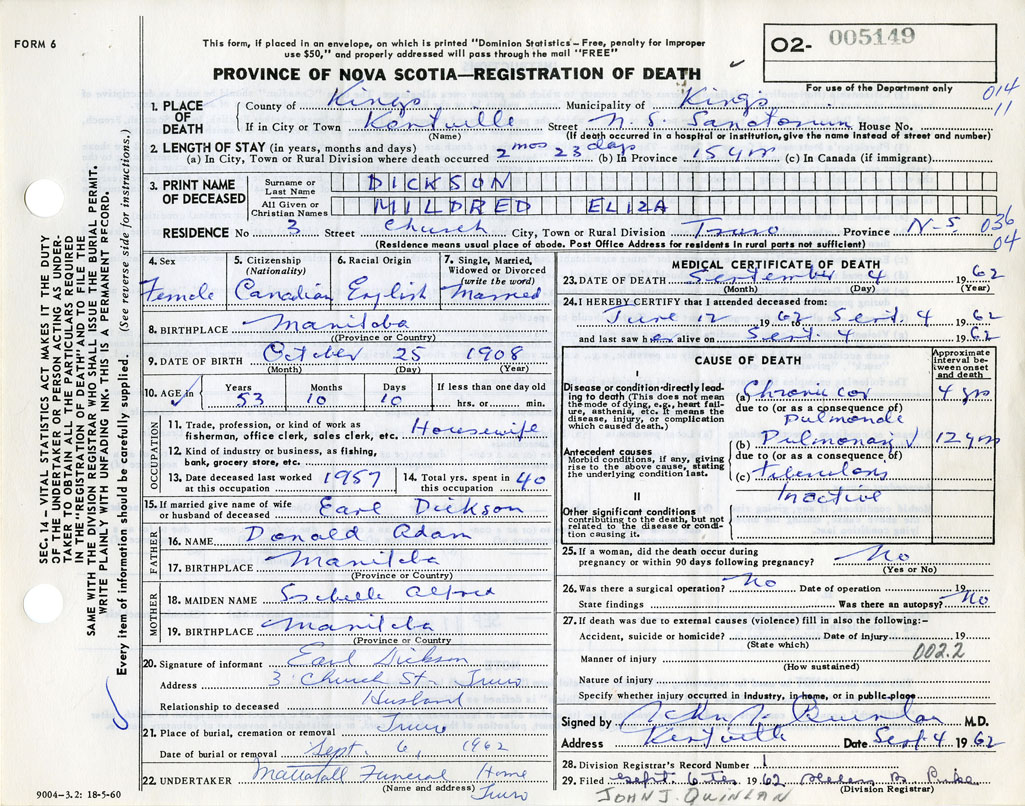 FORM 6
This form, if placed in an envelope, on which is printed "Dominion Statistics - Free, penalty for improper
use $50," and properly addressed will pass through the mail "FREE"
PROVINCE OF NOVA SCOTIA—REGISTRATION OF DEATH
O2- 005149
For use of the Department only
014
11
1. PLACE OF DEATH
County of Kings Municipality of Kings
If in City or Town Kentville Street N. S. Sanatorium House No.
(Name) (If death occurred in a hospital or institution, give the name instead of street and number)
2. LENGTH OF STAY (in years, months and days)
(a) In City, Town or Rural Division where death occurred 2 mos 23 days (b) In Province 15 yrs (c) In Canada (if immigrant)
3. PRINT NAME OF DECEASED
Surname or Last Name DICKSON
All Given or Christian Names MILDRED ELIZA
RESIDENCE No 3 Street Church City, Town or Rural Division Truro Province N-S
036
04
(Residence means usual place of abode. Post Office Address for residents in rural parts not sufficient)
4. Sex Female
5. Citizenship (Nationality) Canadian
6. Racial Origin English
7. Single, Married, Widowed or Divorced (write the word) Married
8. BIRTHPLACE Manitoba
(Province or Country)
9. DATE OF BIRTH October 25 1908
(Month) (Day) (Year)
10. AGE in Years 53 Months 10 Days 10 If less than one day old hrs. or min.
OCCUPATION
11. Trade, profession, or kind of work as fisherman, office clerk, sales clerk, etc. Housewife
12. Kind of industry or business, as fishing, bank, grocery store, etc.
13. Date deceased last worked at this occupation 1957
14. Total yrs. spent in this occupation 40
15. If married give name of wife or husband of deceased Earl Dickson
FATHER
16. NAME Donald Adam
17. BIRTHPLACE Manitoba
(Province or Country)
MOTHER
18. MAIDEN NAME Isabelle Alfred
19. BIRTHPLACE Manitoba
(Province or Country)
20. Signature of informant Earl Dickson
Address 3 Church St. Truro
Relationship to deceased Husband
21. Place of burial, cremation or removal Truro
Date of burial or removal Sept. 6, 1962
22. UNDERTAKER Mattatall Funeral Home
(Name and address) Truro
9004-3.2: 18-5-60
MEDICAL CERTIFICATE OF DEATH
23. DATE OF DEATH September 4 1962
(Month) (Day) (Year)
24. I HEREBY CERTIFY that I attended deceased from:
June 12 1962 Sept. 4 1962
and last saw her alive on Sept. 4 1962
CAUSE OF DEATH
Approximate interval between onset and death
I
Disease or condition directly leading to death (This does not mean the mode of dying, e.g., heart failure, asthenia, etc. It means the disease, injury, or complication which caused death.)
(a) Chronic cor 4 yrs
due to (or as a consequence of)
Pulmonale
Antecedent causes
Morbid conditions, if any, giving rise to the above cause, stating the underlying condition last.
(b) Pulmonary 12 yrs
due to (or as a consequence of)
(c) Tuberculosis
Inactive
II
Other significant conditions
contributing to the death, but not related to the disease or condition causing it.
25. If a woman, did the death occur during pregnancy or within 90 days following pregnancy? No
(Yes or No)
26. Was there a surgical operation? No Date of operation 19
State findings Was there an autopsy? No
27. If death was due to external causes (violence) fill in also the following:-
Accident, suicide or homicide? Date of injury 19
(State which) 002.2
Manner of injury
(How sustained)
Nature of injury
Specify whether injury occurred in industry, in home, or in public place
Signed by John J. Quinlan M.D.
Address Kentville Date Sept 4 1962
28. Division Registrar's Record Number 1
29. Filed Sept. 6 1962
(Division Registrar)
JOHN J. QUINLAN
SEC. 14 - VITAL STATISTICS ACT MAKES IT THE DUTY
OF THE UNDERTAKER OR PERSON ACTING AS UNDER-
TAKER TO OBTAIN ALL THE PARTICULARS REQUIRED
IN THE "REGISTRATION OF DEATH" AND TO FILE THE
SAME WITH THE DIVISION REGISTRAR WHO SHALL ISSUE THE BURIAL PERMIT.
WRITE PLAINLY WITH UNFADING INK. THIS IS A PERMANENT RECORD.
Every item of information should be carefully supplied. (See reverse side for instructions.)